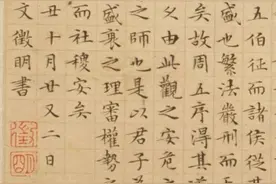 五伯征而諸侯從其
盛也繁法嚴刑而天
矣故周五序得其
久由此觀之安危之
之師也是以君子
盛衰之理審權勢
而社稷安矣
丑十月廿又二日
文徵明書
徵明